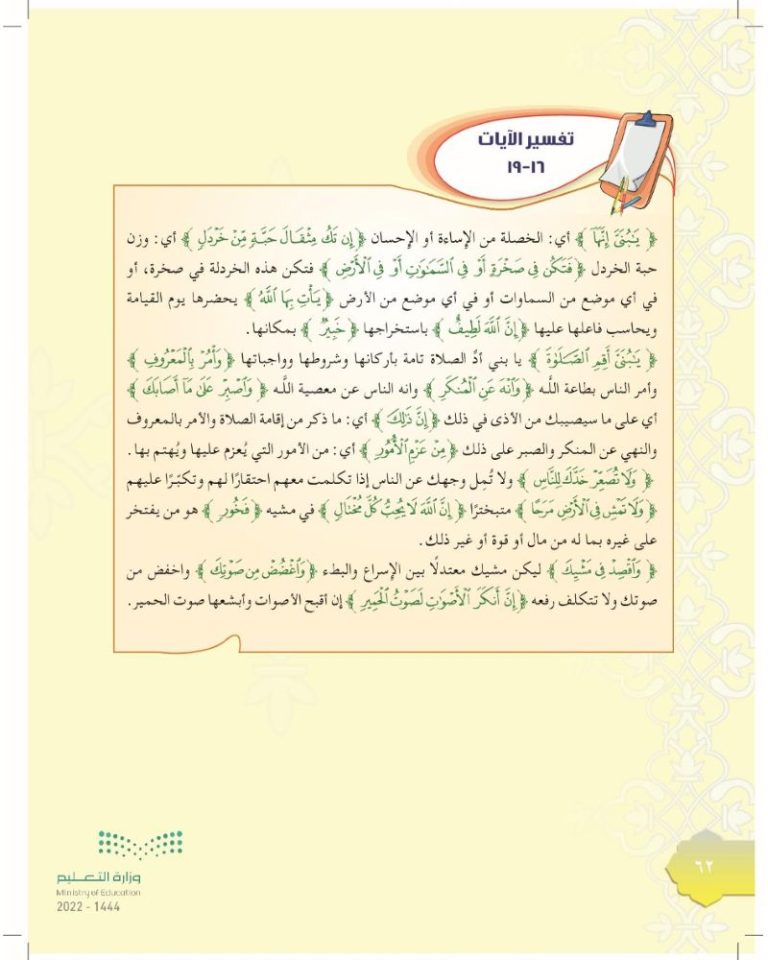 تفسير الآيات
١٦-١٩
﴿ يَٰبُنَيَّ إِنَّهَآ ﴾ أي: الخصلة من الإساءة أو الإحسان ﴿ إِن تَكُ مِثْقَالَ حَبَّةٍ مِّنْ خَرْدَلٍ ﴾ أي: وزن
حبة الخردل ﴿ فَتَكُن فِي صَخْرَةٍ أَوْ فِي ٱلسَّمَٰوَٰتِ أَوْ فِي ٱلْأَرْضِ ﴾ فتكن هذه الخردلة في صخرة، أو
في أي موضع من السماوات أو في أي موضع من الأرض ﴿ يَأْتِ بِهَا ٱللَّهُ ﴾ يحضرها يوم القيامة
ويحاسب فاعلها عليها ﴿ إِنَّ ٱللَّهَ لَطِيفٌ ﴾ باستخراجها ﴿ خَبِيرٌ ﴾ بمكانها.
﴿ يَٰبُنَيَّ أَقِمِ ٱلصَّلَوٰةَ ﴾ يا بني أدِّ الصلاة تامة بأركانها وشروطها وواجباتها ﴿ وَأْمُرْ بِٱلْمَعْرُوفِ ﴾
وأمر الناس بطاعة اللَّه ﴿ وَٱنْهَ عَنِ ٱلْمُنكَرِ ﴾ وانه الناس عن معصية اللَّه ﴿ وَٱصْبِرْ عَلَىٰ مَآ أَصَابَكَ ﴾
أي على ما سيصيبك من الأذى في ذلك ﴿ إِنَّ ذَٰلِكَ ﴾ أي: ما ذكر من إقامة الصلاة والأمر بالمعروف
والنهي عن المنكر والصبر على ذلك ﴿ مِنْ عَزْمِ ٱلْأُمُورِ ﴾ أي: من الأمور التي يُعزم عليها ويُهتم بها.
﴿ وَلَا تُصَعِّرْ خَدَّكَ لِلنَّاسِ ﴾ ولا تُمِل وجهك عن الناس إذا تكلمت معهم احتقارًا لهم وتكبّرًا عليهم
﴿ وَلَا تَمْشِ فِي ٱلْأَرْضِ مَرَحًا ﴾ متبخترًا ﴿ إِنَّ ٱللَّهَ لَا يُحِبُّ كُلَّ مُخْتَالٍ ﴾ في مشيه ﴿ فَخُورٍ ﴾ هو من يفتخر
على غيره بما له من مال أو قوة أو غير ذلك.
﴿ وَٱقْصِدْ فِي مَشْيِكَ ﴾ ليكن مشيك معتدلًا بين الإسراع والبطء ﴿ وَٱغْضُضْ مِن صَوْتِكَ ﴾ واخفض من
صوتك ولا تتكلف رفعه ﴿ إِنَّ أَنكَرَ ٱلْأَصْوَٰتِ لَصَوْتُ ٱلْحَمِيرِ ﴾ إن أقبح الأصوات وأبشعها صوت الحمير.
٦٢
وزارة التعليم
Ministry of Education
2022 - 1444